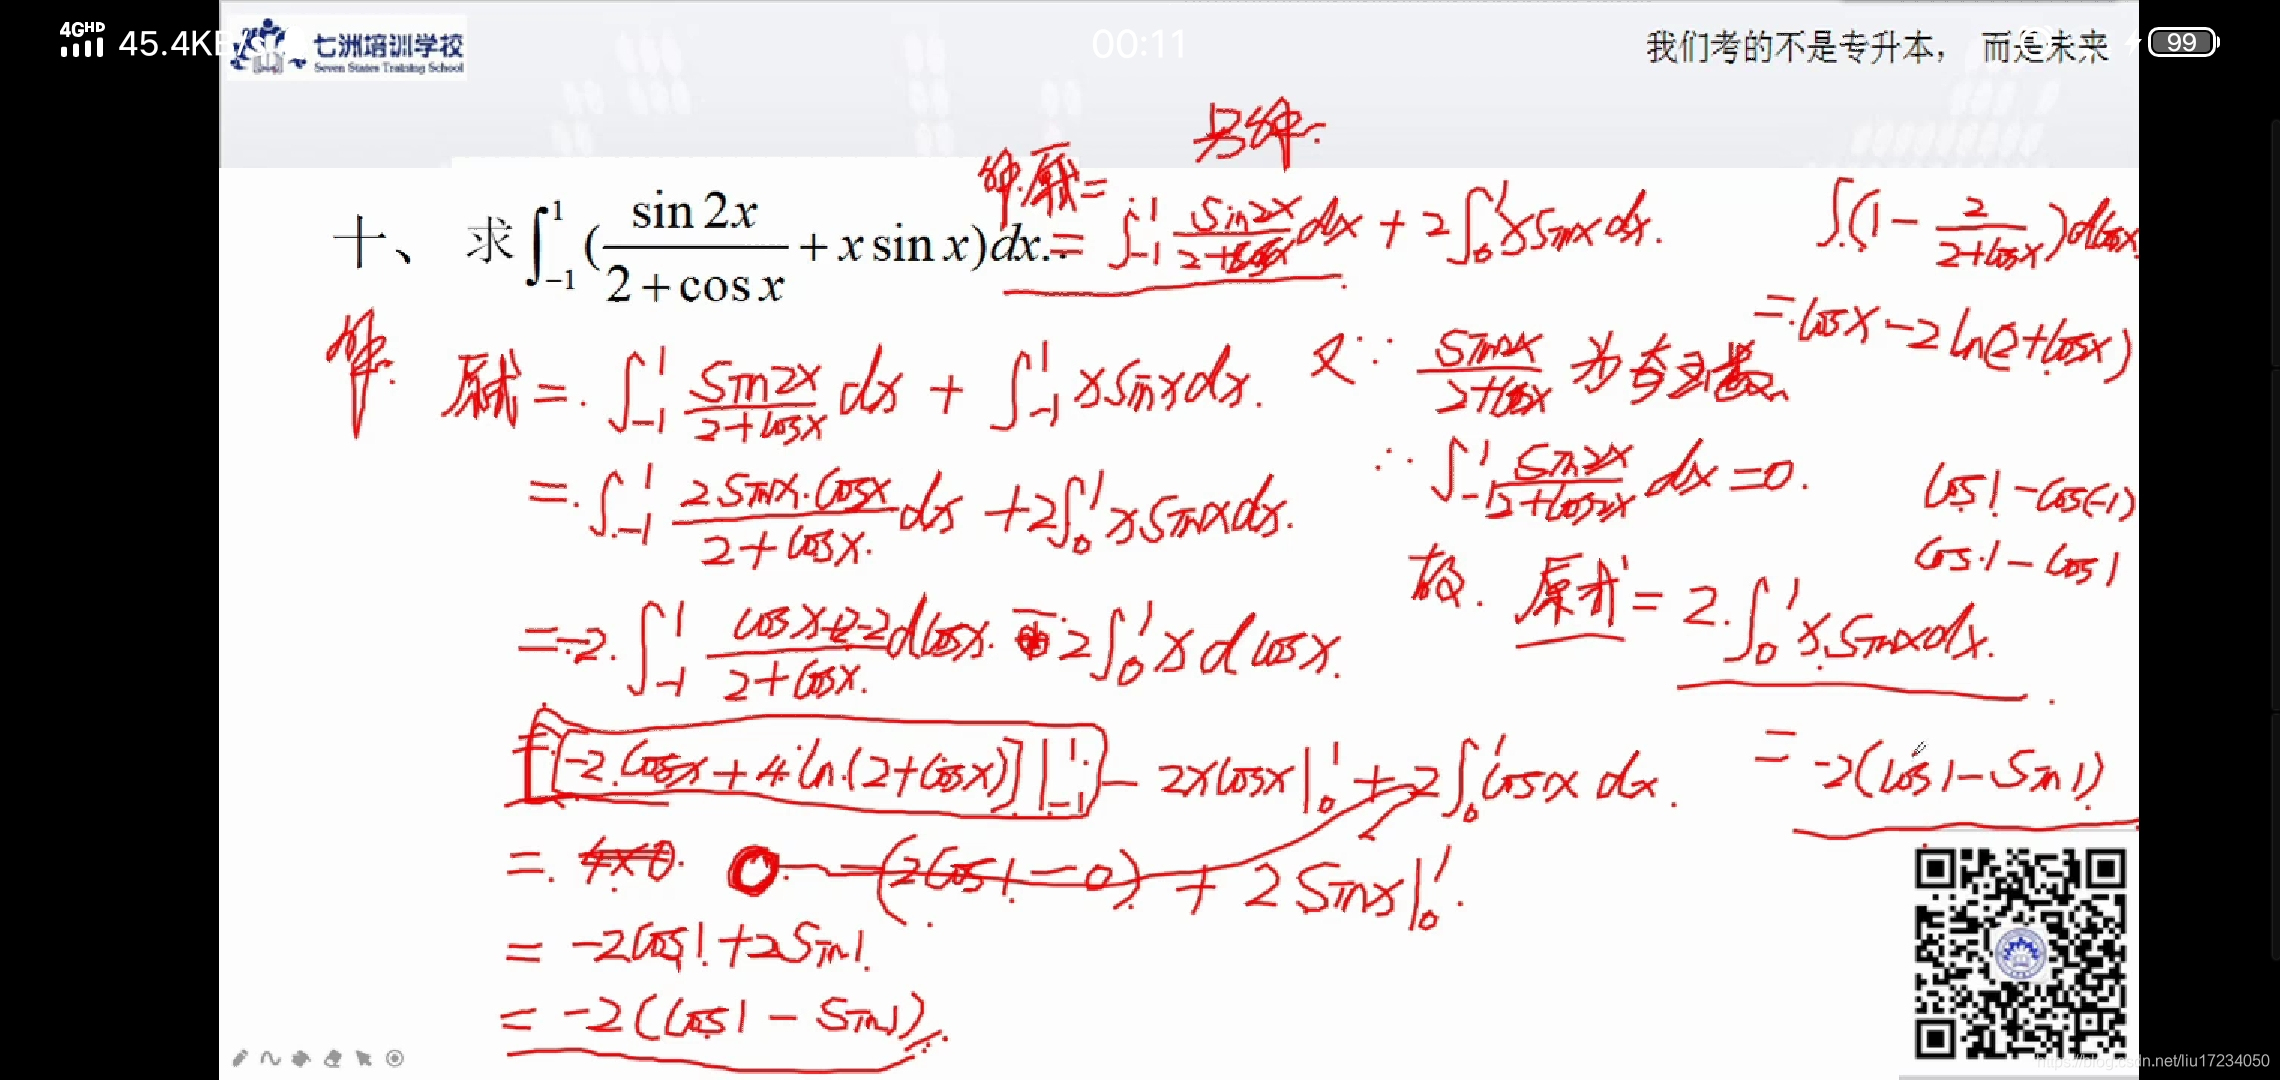 4GHD 45.4KB/s 00:11 99
七洲培训学校
Seven States Training School
我们考的不是专升本， 而是未来
另解.
解.原式=
十、 求∫_{-1}^{1}(\frac{sin 2x}{2+cos x}+x sin x)dx.
=∫_{-1}^{1}\frac{sin2x}{2+cosx}dx+2∫_{0}^{1}xsinxdx.
∫(1-\frac{2}{2+cosx})dcosx
=cosx-2ln(2+cosx)
解.
原式=∫_{-1}^{1}\frac{sin2x}{2+cosx}dx+∫_{-1}^{1}xsinxdx.
又∵\frac{sin2x}{2+cosx}为奇函数
=∫_{-1}^{1}\frac{2sinx·cosx}{2+cosx}dx+2∫_{0}^{1}xsinxdx.
∴∫_{-1}^{1}\frac{sin2x}{2+cos2x}dx=0.
cos1-cos(-1)
cos1-cos1
=-2∫_{-1}^{1}\frac{cosx+2-2}{2+cosx}dcosx-2∫_{0}^{1}xdcosx.
故.原式=2∫_{0}^{1}xsinxdx.
=[-2cosx+4ln(2+cosx)]|_{-1}^{1}-2xcosx|_{0}^{1}+2∫_{0}^{1}cosxdx.
=-2(cos1-sin1)
=4×0. 0-(2cos1-0)+2sinx|_{0}^{1}.
=-2cos1+2sin1.
=-2(cos1-sin1).
https://blog.csdn.net/liu17234050